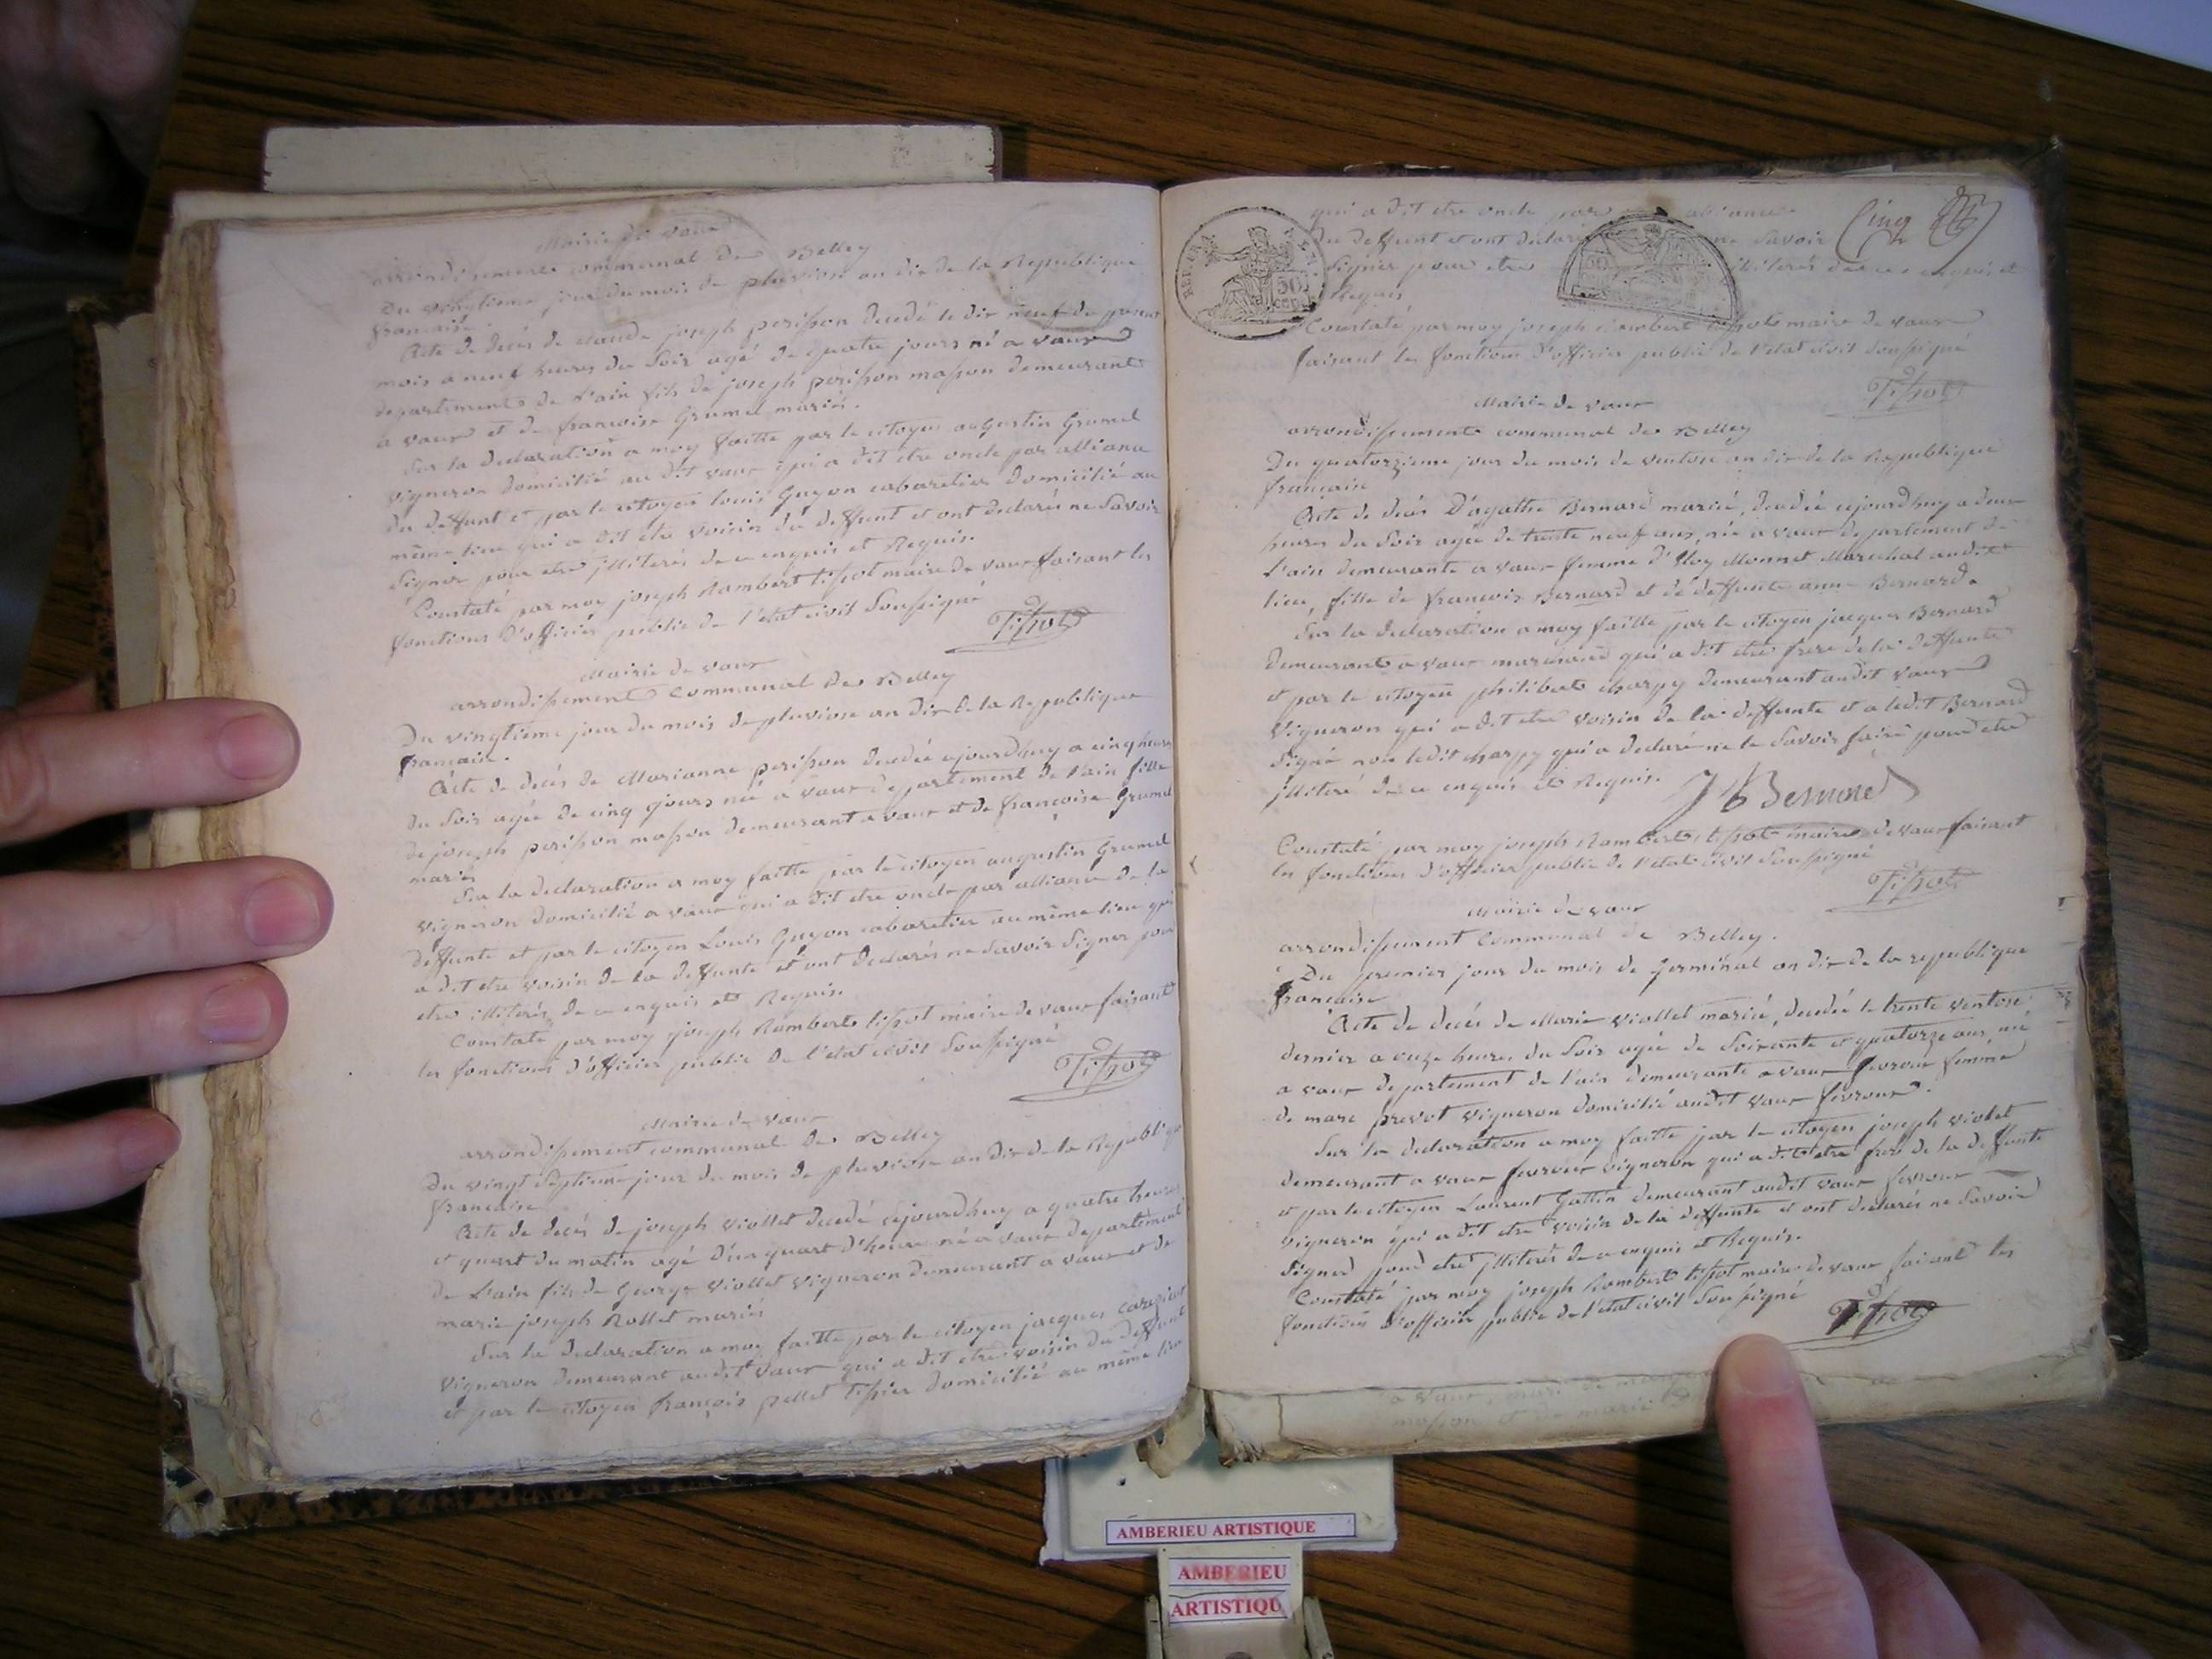 Mairie de vaux
arrondissement communal de Belley
Du vingtieme jour du mois de pluviose an dix de la Republique
francaise.
Acte de decés de claude joseph perisson decedé le dix neuf du present
mois a neuf heures du soir agé de quatre jours né a vaux
departement de l'ain fils de joseph perisson masson demeurant
a vaux et de francoise Grumel mariés.
Sur la declaration a moy faitte par le citoyen augustin Grumel
vigneron domicilié au dit vaux qui a dit etre oncle par alliance
du deffunt et par le citoyen louis Guyon cabaretier domicilié au
même lieu qui a dit etre voisin du deffunt et ont declarés ne savoir
signer pour etre illiterés de ce enquis et Requis.
Constaté par moy joseph Rambert tissot maire de vaux faisant les
fonctions d'officier public de l'etat civil soussigné
Tissot
Mairie de vaux
arrondissement communal de Belley
Du vingtieme jour du mois de pluviose an dix de la Republique
francaise.
Acte de decés de Marianne perisson decedée cejourdhuy a cinq heures
du soir agée de cinq jours née a vaux departement de l'ain fille
de joseph perisson masson demeurant a vaux et de francoise Grumel
mariés
Sur la declaration a moy faitte par le citoyen augustin Grumel
vigneron domicilié a vaux qui a dit etre oncle par alliance de la
deffunte et par le citoyen Louis Guyon cabaretier au même lieu qui
a dit etre voisin de la deffunte et ont declarés ne savoir signer pour
etre illiterés de ce enquis et Requis.
Constaté par moy joseph Rambert tissot maire de vaux faisant
les fonctions d'officier public de l'etat civil soussigné
Tissot
Mairie de vaux
arrondissement communal de Belley
Du vingt septieme jour du mois de pluviose an dix de la Republique
francaise.
Acte de decés de joseph viollet decedé cejourdhuy a quatre heures
et quart du matin agé d'un quart d'heure né a vaux departement
de l'ain fils de George viollet vigneron demeurant a vaux et de
marie joseph Rollet mariés
Sur la declaration a moy faitte par le citoyen jacques
vigneron demeurant audit vaux qui a dit etre voisin du deffunt
et par le citoyen françois pellet tissier domicilié au même lieu
Cinq
qui a dit etre oncle par alliance
du deffunt et ont declaré ne savoir
signer pour etre illiterés de ce enquis et
Requis
Constaté par moy joseph Rambert tissot maire de vaux
faisant les fonctions d'officier public de l'etat civil soussigné
Tissot
Mairie de vaux
arrondissement communal de Belley
Du quatorzieme jour du mois de ventose an dix de la Republique
francaise
Acte de decés D'agathe Bernard mariée, decedée cejourdhuy a deux
heures du soir agée de trente neuf ans, née a vaux departement de
l'ain demeurante a vaux femme d'Eloy Monnet Marechal audit
lieu, fille de francois Bernard et de deffunte anne Bernard.
Sur la declaration a moy faitte par le citoyen jacques Bernard
demeurant a vaux marchand qui a dit etre frere de la deffunte
et par le citoyen philibert charpy demeurant audit vaux
vigneron qui a dit etre voisin de la deffunte et a ledit Bernard
signé non ledit charpy qui a declaré ne le savoir faire pour etre
illiteré de ce enquis et Requis.
J Bernard
Constaté par moy joseph Rambert tissot maire de vaux faisant
les fonctions d'officier public de l'etat civil soussigné
Tissot
Mairie de vaux
arrondissement communal de Belley.
Du premier jour du mois de Germinal an dix de la republique
francaise
Acte de decés de Marie viollet mariée, decedée le trente ventose
dernier a onze heures du soir agée de soixante et quatorze ans, née
a vaux departement de l'ain demeurante a vaux fevroux femme
de marc prevot vigneron domicilié audit vaux fevroux.
Sur la declaration a moy faitte par le citoyen joseph violet
demeurant a vaux fevroux vigneron qui a dit etre frere de la deffunte
et par le citoyen Laurent Gattin demeurant audit vaux fevroux
vigneron qui a dit etre voisin de la deffunte et ont declarés ne savoir
signer pour etre illiterés de ce enquis et Requis.
Constaté par moy joseph Rambert tissot maire de vaux faisant les
fonctions d'officier public de l'etat civil soussigné
Tissot
a vaux
masson et de marie
AMBERIEU ARTISTIQUE
AMBERIEU
ARTISTIQU